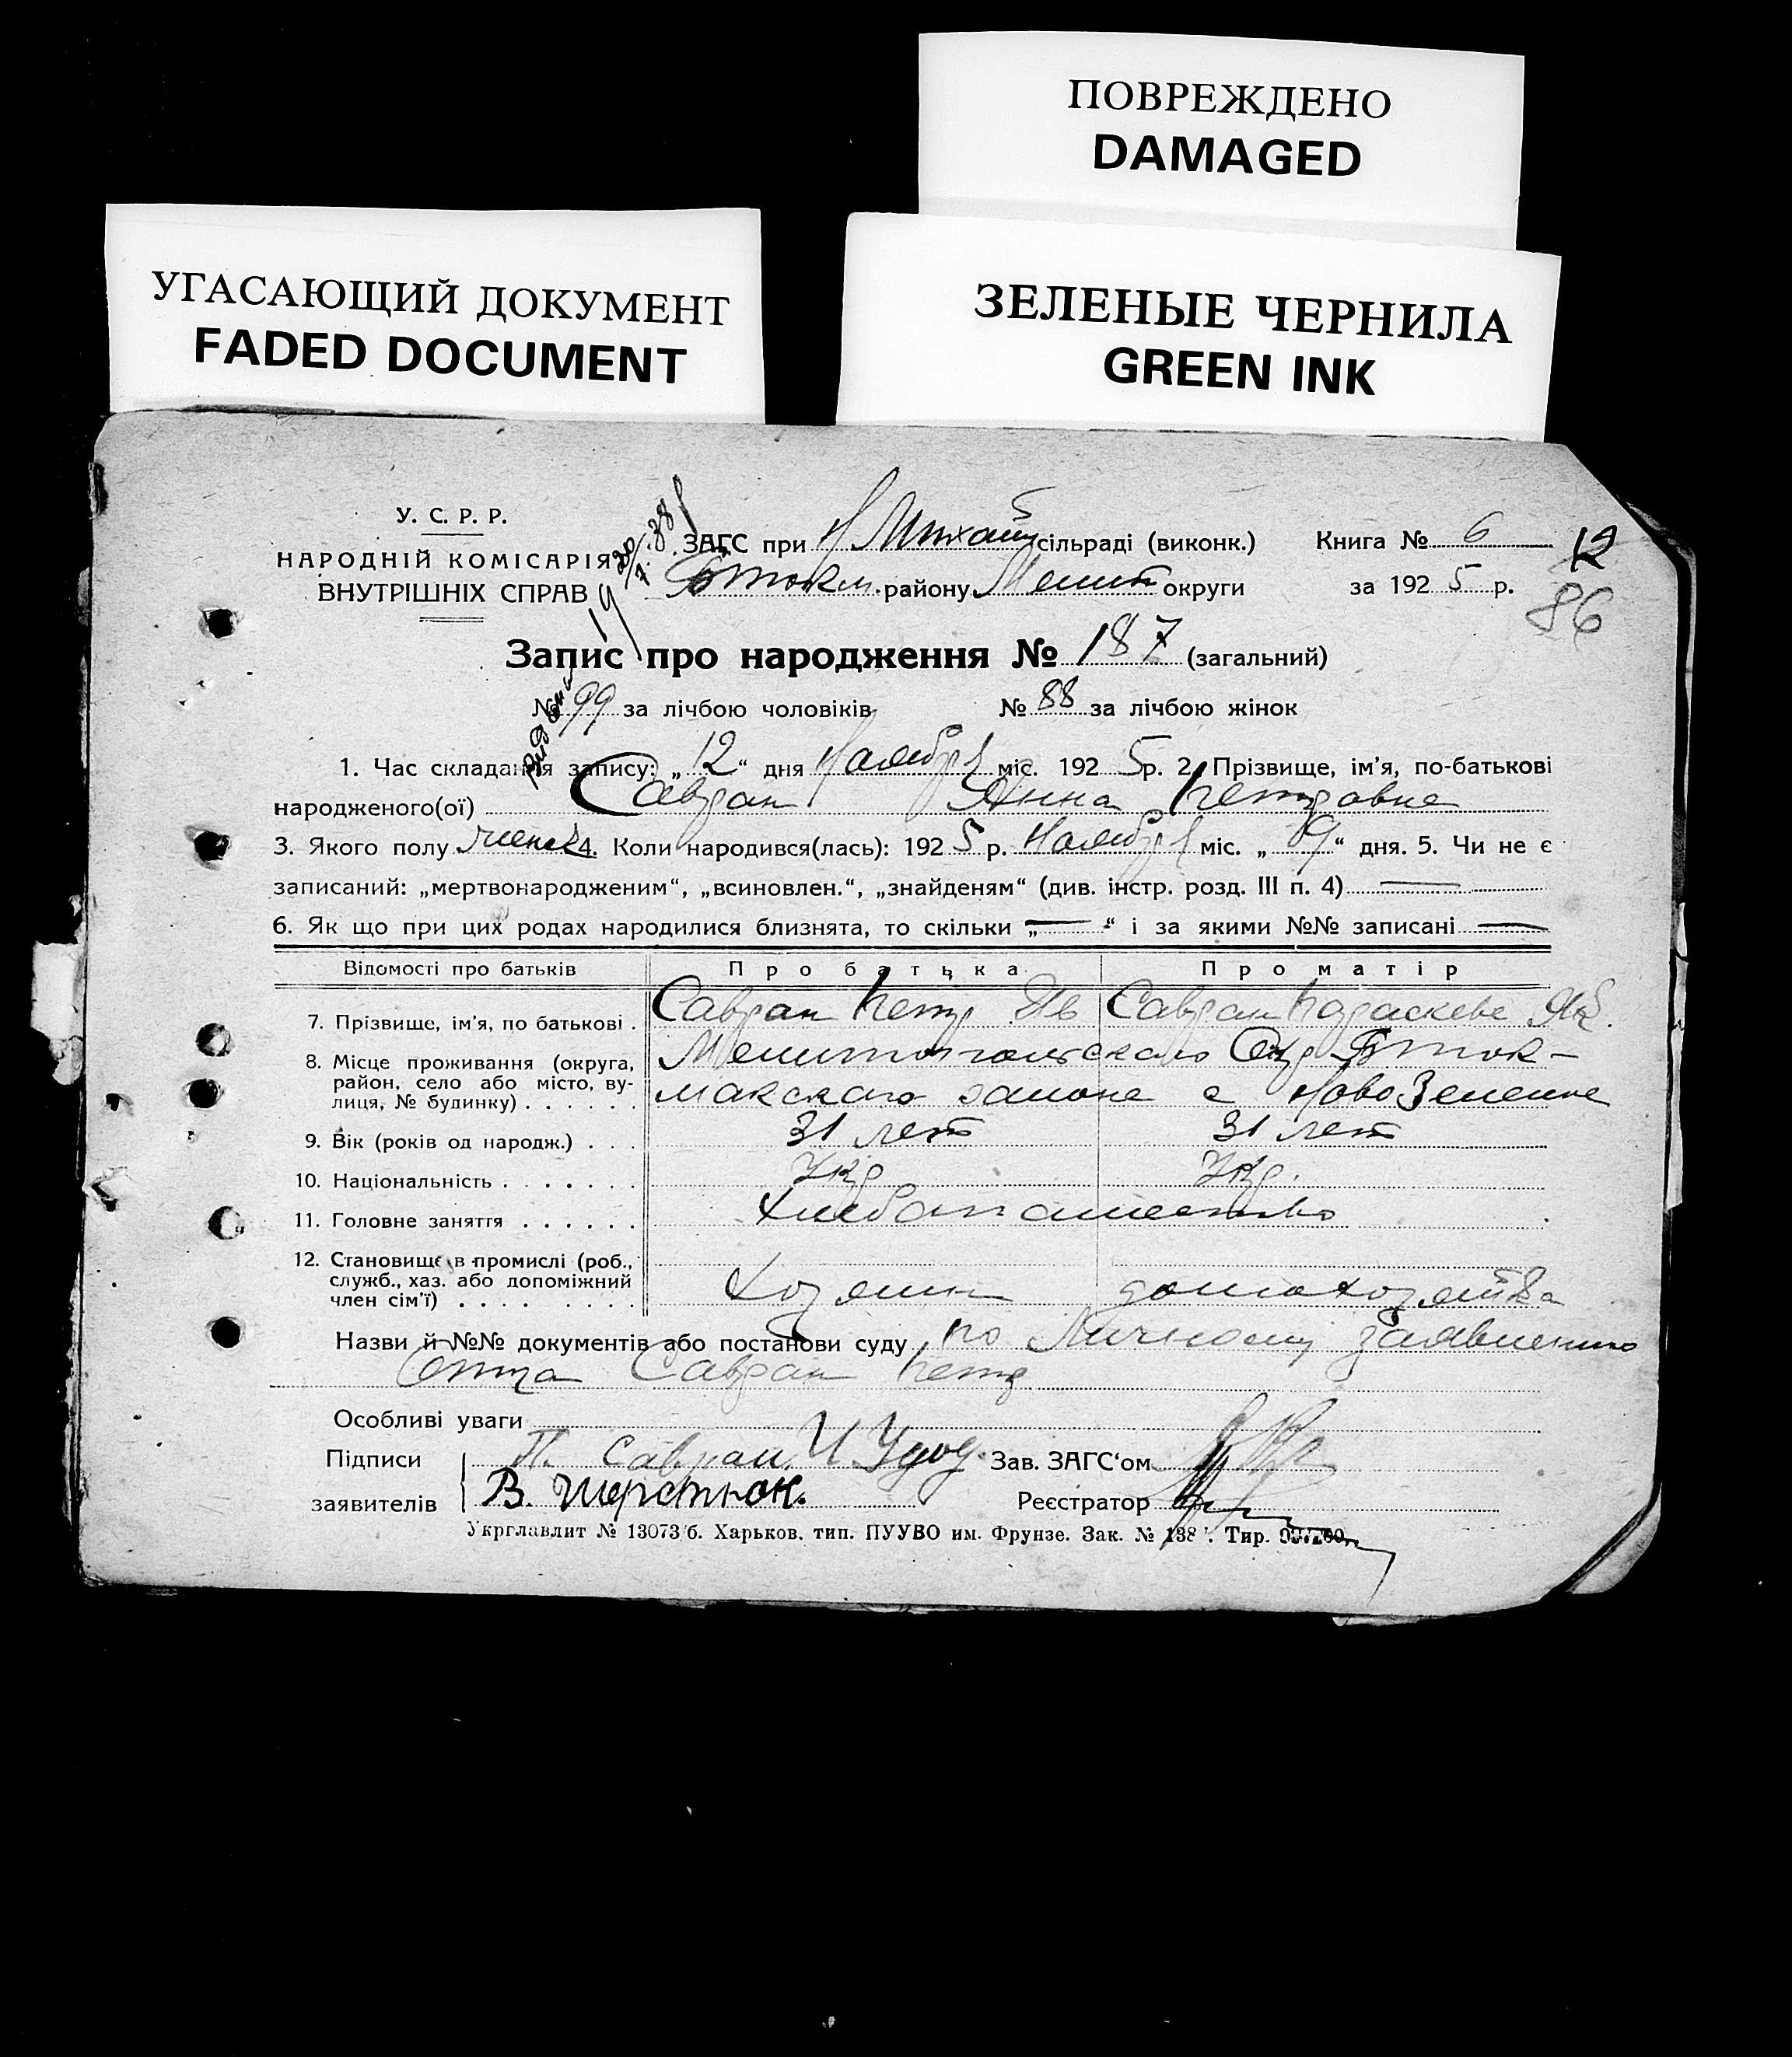 ПОВРЕЖДЕНО
DAMAGED
УГАСАЮЩИЙ ДОКУМЕНТ
FADED DOCUMENT
ЗЕЛЕНЫЕ ЧЕРНИЛА
GREEN INK
У. С. Р. Р.
НАРОДНІЙ КОМІСАРІЯ
ВНУТРІШНІХ СПРАВ
ЗАГС при Н Михай сільраді (виконк.) Книга № 6 12
Бток м. району Мелит округи за 192 5 р. 86
Запис про народження № 187 (загальний)
№ 99 за лічбою чоловіків № 88 за лічбою жінок
1. Час складання запису: „ 12 “ дня Наября міс. 192 5 р. 2. Прізвище, ім’я, по-батькові
народженого(ої) Савран Анна Петровна
3. Якого полу женск 4. Коли народився(лась): 192 5 р. Наября міс. „ 9 “ дня. 5. Чи не є
записаний: „мертвонародженим“, „всиновлен.“, „знайденям“ (див. інстр. розд. III п. 4) —
6. Як що при цих родах народилися близнята, то скільки „ — “ і за якими №№ записані —
Відомості про батьків Про батька Про матір
7. Прізвище, ім’я, по батькові . Савран Петр Ив Савран Параскева Як.
8. Місце проживання (округа, Мелитопольскаго Окр Бток-
район, село або місто, ву-
лиця, № будинку) . . . . . . макскаго району с НовоЗеленне
9. Вік (років од народж.) . . . 31 лет 31 лет
10. Національність . . . . . . . Укр Укр.
11. Головне заняття . . . . . . Хлебопашество
12. Становище в промислі (роб.,
служб., хаз. або допоміжний
член сім’ї) . . . . . . . . Хозяин домохозяйка
Назви й №№ документів або постанови суду по Личному заявлению
Отца Савран Петр
Особливі уваги
Підписи П. Савран, И Удод. Зав. ЗАГС‘ом
заявителів В. Шерстюк. Реєстратор
Укрглавлит № 13073/б. Харьков. тип. ПУУВО им. Фрунзе. Зак. № 138 . Тир.